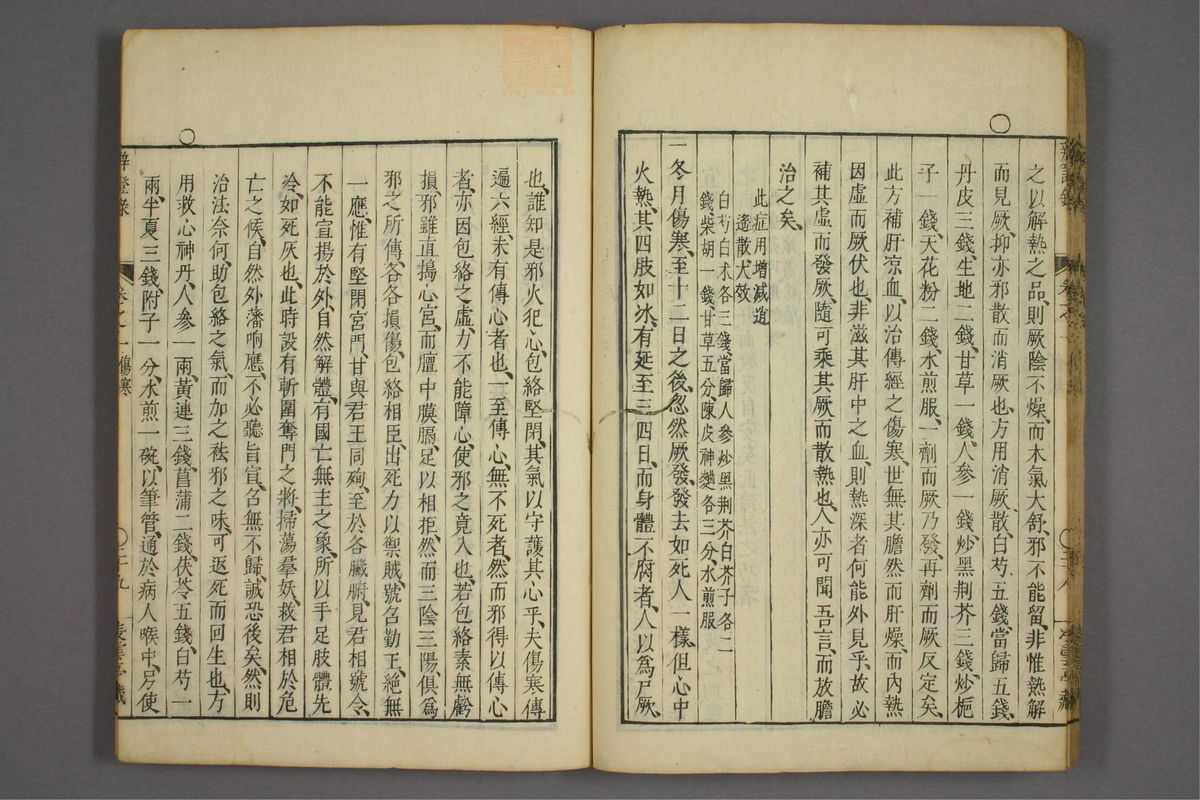 之以解熱之品、則厥陰不燥、而木氣大舒、邪不能留、非惟熱解
而見厥、抑亦邪散而消厥也、方用消厥散、白芍五錢、當歸五錢、
丹皮三錢、生地二錢、甘草一錢、人參一錢、炒黑荆芥三錢、炒梔
子一錢、天花粉二錢、水煎服、一劑而厥乃發、再劑而厥反定矣、
此方補肝凉血、以治傳經之傷寒、世無其膽、然而肝燥、而內熱
因虛而厥伏也、非滋其肝中之血、則熱深者何能外見乎、故必
補其虛、而發厥、隨可乘其厥而散熱也、人亦可聞吾言、而放膽
治之矣、
此症用增減逍
遙散大效
白芍白术各三錢當歸人參炒黑荆芥白芥子各二
錢柴胡一錢甘草五分陳皮神麯各三分水煎服
一冬月傷寒、至十二日之後、忽然厥發、發去如死人一樣、但心中
火熱、其四肢如冰、有延至三四日、而身體不腐者、人以為尸厥、
也、誰知是邪火犯心、包絡堅閉、其氣以守護其心乎、夫傷寒傳
遍六經、未有傳心者也、一至傳心、無不死者、然而邪得以傳心
者、亦因包絡之虛、力不能障心、使邪之竟入也、若包絡素無虧
損、邪雖直搗心宮、而膻中膜膈、足以相拒、然而三陰三陽、俱為
邪之所傳、各各損傷、包絡相臣、出死力以禦賊、號召勤王、絕無
一應、惟有堅閉宮門、甘與君王同殉、至於各臟腑、見君相號令、
不能宣揚於外、自然解體、有國亡無主之象、所以手足肢體先
冷、如死灰也、此時設有斬圍奪門之將、掃蕩羣妖、救君相於危
亡之候、自然外藩响應、不必聽旨宣、召無不歸、誠恐後矣、然則
治法奈何、助包絡之氣、而加之祛邪之味、可返死而回生也、方
用救心神丹、人參一兩、黃連三錢、菖蒲二錢、茯苓五錢、白芍一
兩、半夏三錢、附子一分、水煎一碗、以筆管、通於病人喉中、另使
辨證錄 卷之一 傷寒 三九